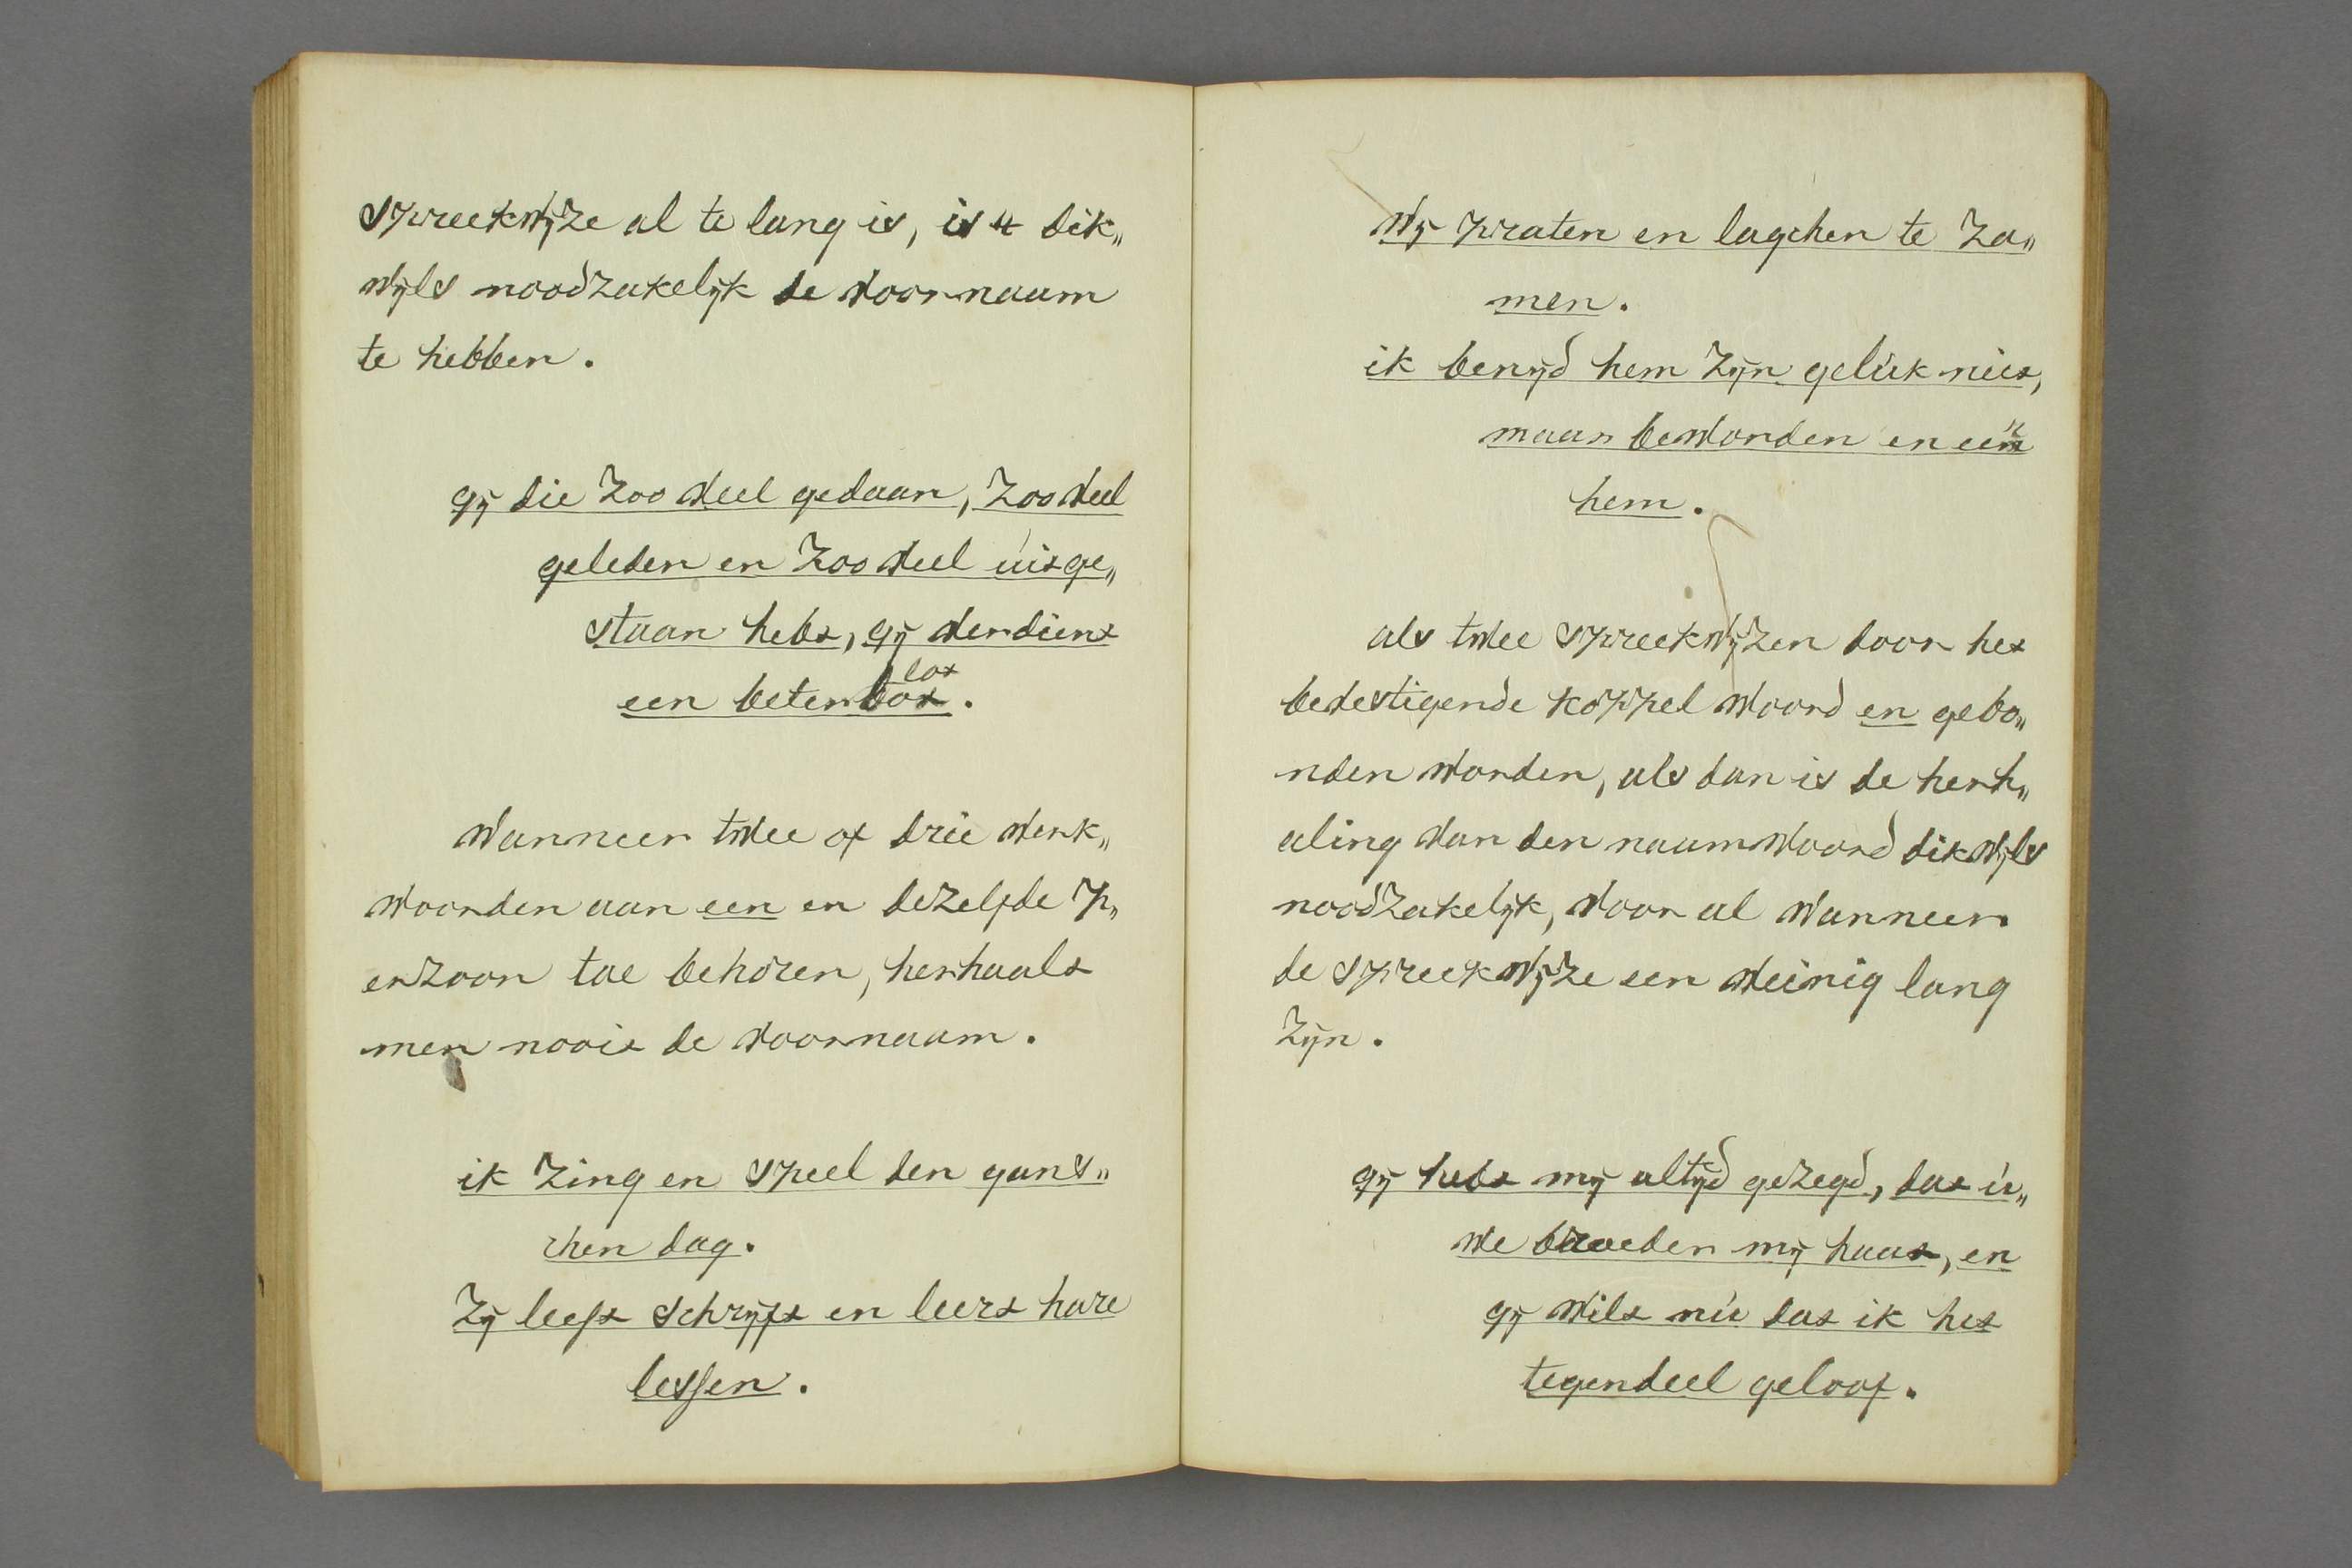 spreekwijze al te lang is, is 't dik„
wijls noodzakelijk de voornaam
te hebben.
gij die zoo veel gedaan, zoo veel
geleden en zoo veel uitge„
staan hebt, gij verdient
lot
een beter bot.
Wanneer twee of drie werk„
woorden aan een en dezelfde p„
erzoon toe behoren, herhaalt
men nooit de voornaam.
ik zing en speel den gans„
chen dag.
Zij leest schrijft en leert hare
lessen.
Wij praten en lagchen te za„
men.
ik benijd hem zijn geluk niet,
maar bewonder en eer
hem.
als twee spreekwijzen door het
bevestigende koppel woord en gebo„
nden worden, als dan is de herh„
aling van den naamwoord dikwijls
noodzakelijk, voor al wanneer
de spreekwijze een weinig lang
zijn.
gij hebt mij altijd gezegd, dat u„
we broeder mij haat, en
gij wilt nu dat ik het
tegendeel geloof.